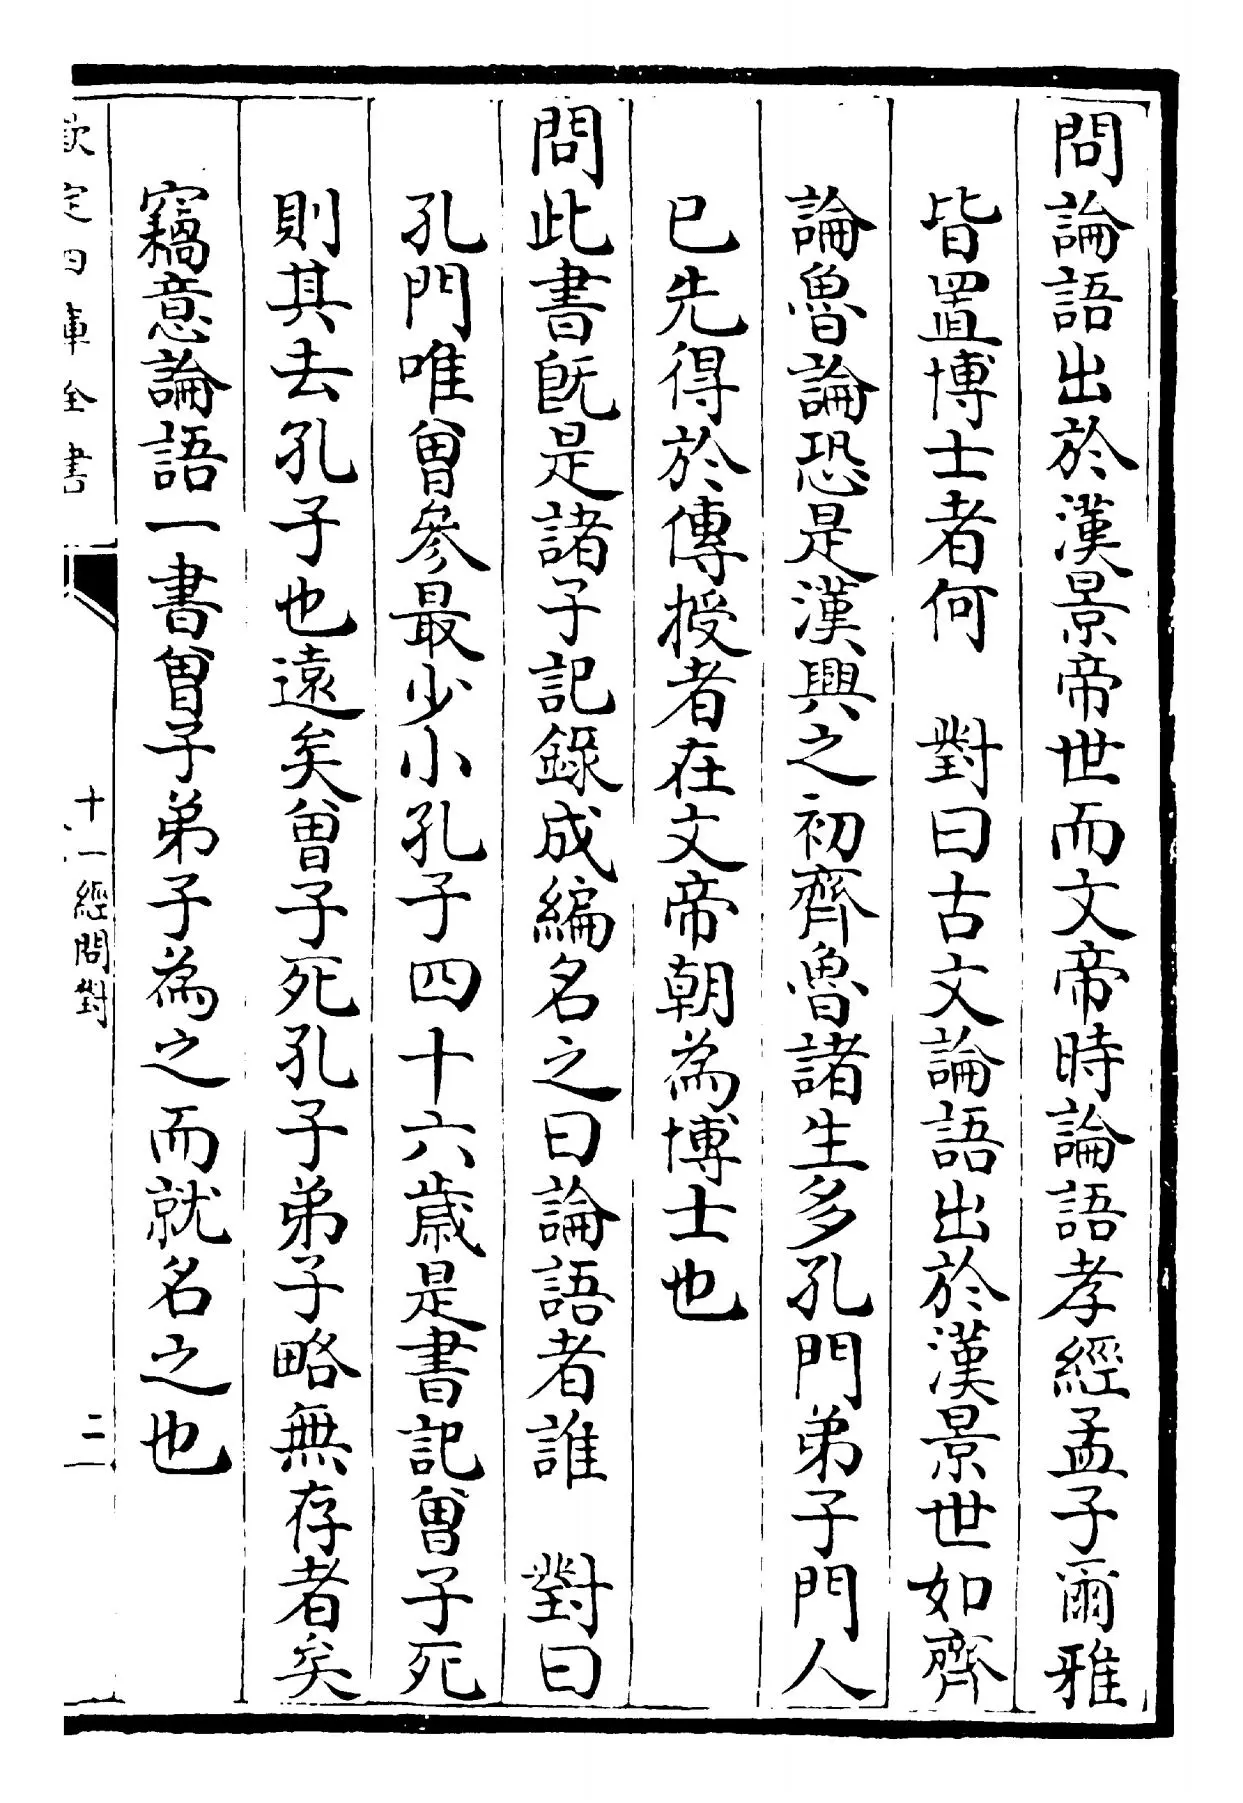 問論語出於漢景帝世而文帝時論語孝經孟子爾雅
皆置博士者何　對曰古文論語出於漢景世如齊
論魯論恐是漢興之初齊魯諸生多孔門弟子門人
已先得於傳授者在文帝朝為博士也
問此書既是諸子記錄成編名之曰論語者誰　對曰
孔門唯曾參最少小孔子四十六歲是書記曾子死
則其去孔子也遠矣曾子死孔子弟子略無存者矣
竊意論語一書曾子弟子為之而就名之也
欽定四庫全書
十一經問對
二